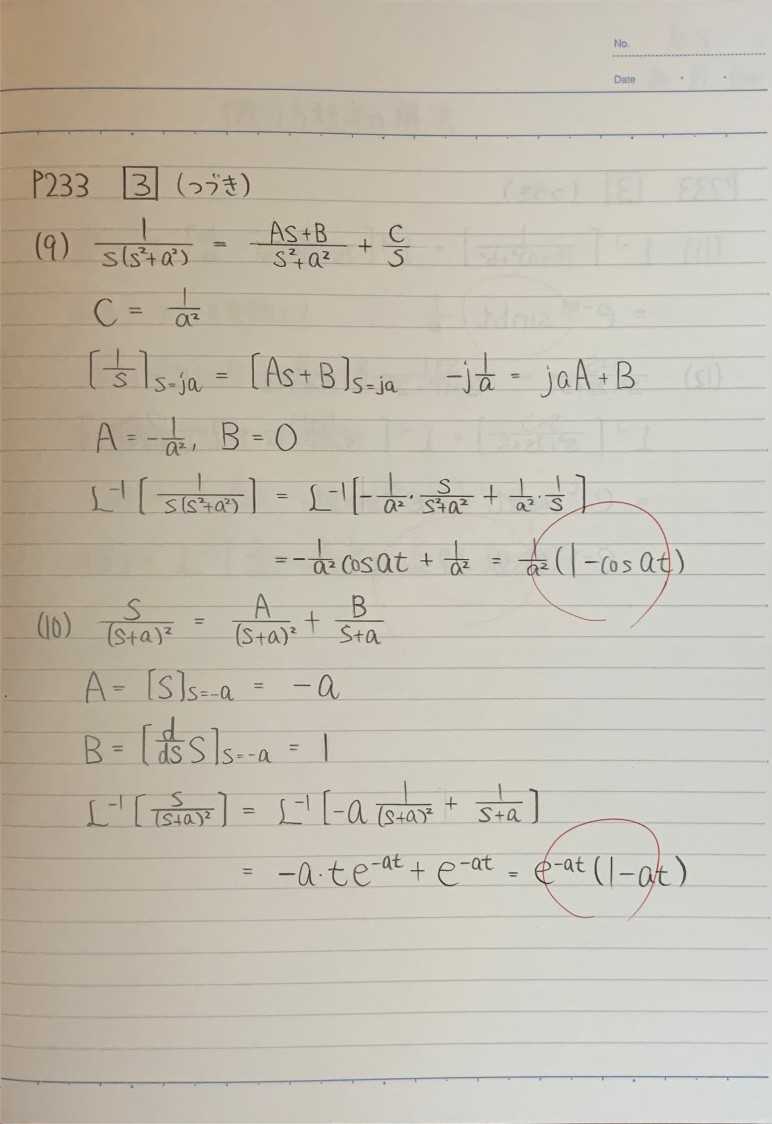 No.
Date
P233 3 (つづき)
(9) 1/(s(s²+a²)) = (As+B)/(s²+a²) + C/s
C = 1/a²
[1/s]s=ja = [As+B]s=ja -j1/a = jaA+B
A = -1/a², B = 0
L⁻¹[1/(s(s²+a²))] = L⁻¹[-1/a²・s/(s²+a²) + 1/a²・1/s]
= -1/a² cos at + 1/a² = 1/a²(1-cos at)
(10) s/(s+a)² = A/(s+a)² + B/(s+a)
A = [s]s=-a = -a
B = [d/ds s]s=-a = 1
L⁻¹[s/(s+a)²] = L⁻¹[-a 1/(s+a)² + 1/(s+a)]
= -a・te⁻ᵃᵗ + e⁻ᵃᵗ = e⁻ᵃᵗ(1-at)